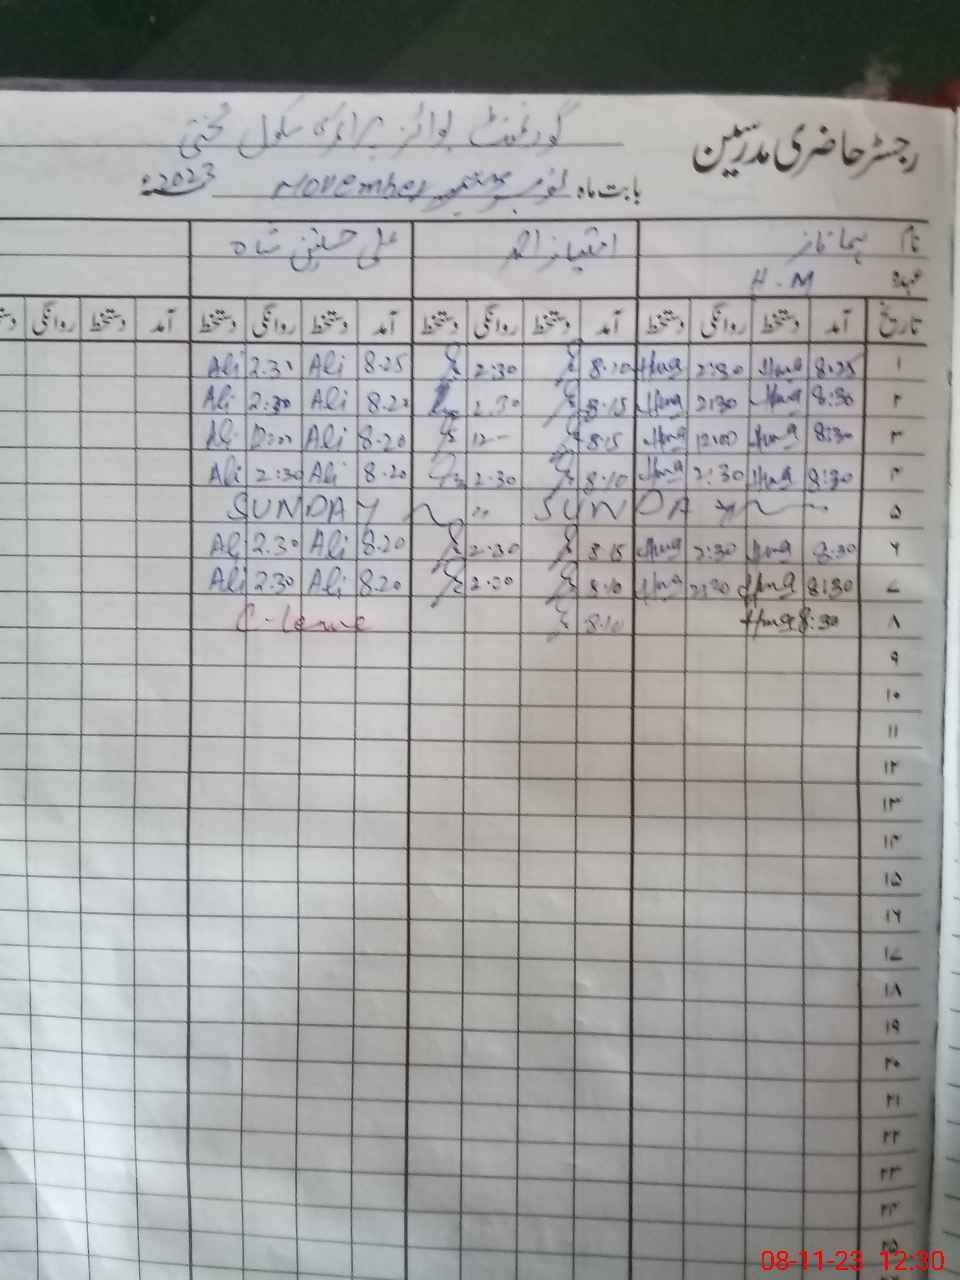 رجسٹر حاضری مدرسین
گورنمنٹ بوائز پرائمری سکول
بابت ماہ نومبر November 2023ء
نام ہما ناز امتیاز احمد علی حسنین شاہ
عہدہ H.M
تاریخ آمد دستخط روانگی دستخط آمد دستخط روانگی دستخط آمد دستخط روانگی دستخط آمد دستخط روانگی دستخط
۱ 8:25 Huma 2:30 Huma 8.10 2:30 8.25 Ali 2.30 Ali
۲ 8:30 Huma 2:30 Huma 8.15 2.30 8.20 Ali 2:30 Ali
۳ 8:30 Huma 12:00 Huma 8.15 12- 8.20 Ali 12:00 Ali
۴ 8:30 Huma 2:30 Huma 8.10 2.30 8.20 Ali 2:30 Ali
۵ SUNDAY SUNDAY
۶ 8:30 Huma 2:30 Huma 8.15 2:30 8.20 Ali 2.30 Ali
۷ 8:30 Huma 2:30 Huma 8.10 2:30 8.20 Ali 2.30 Ali
۸ 8:30 Huma 8.10 C-leave
۹
۱۰
۱۱
۱۲
۱۳
۱۴
۱۵
۱۶
۱۷
۱۸
۱۹
۲۰
۲۱
۲۲
۲۳
۲۴
۲۵
08-11-23 12:30